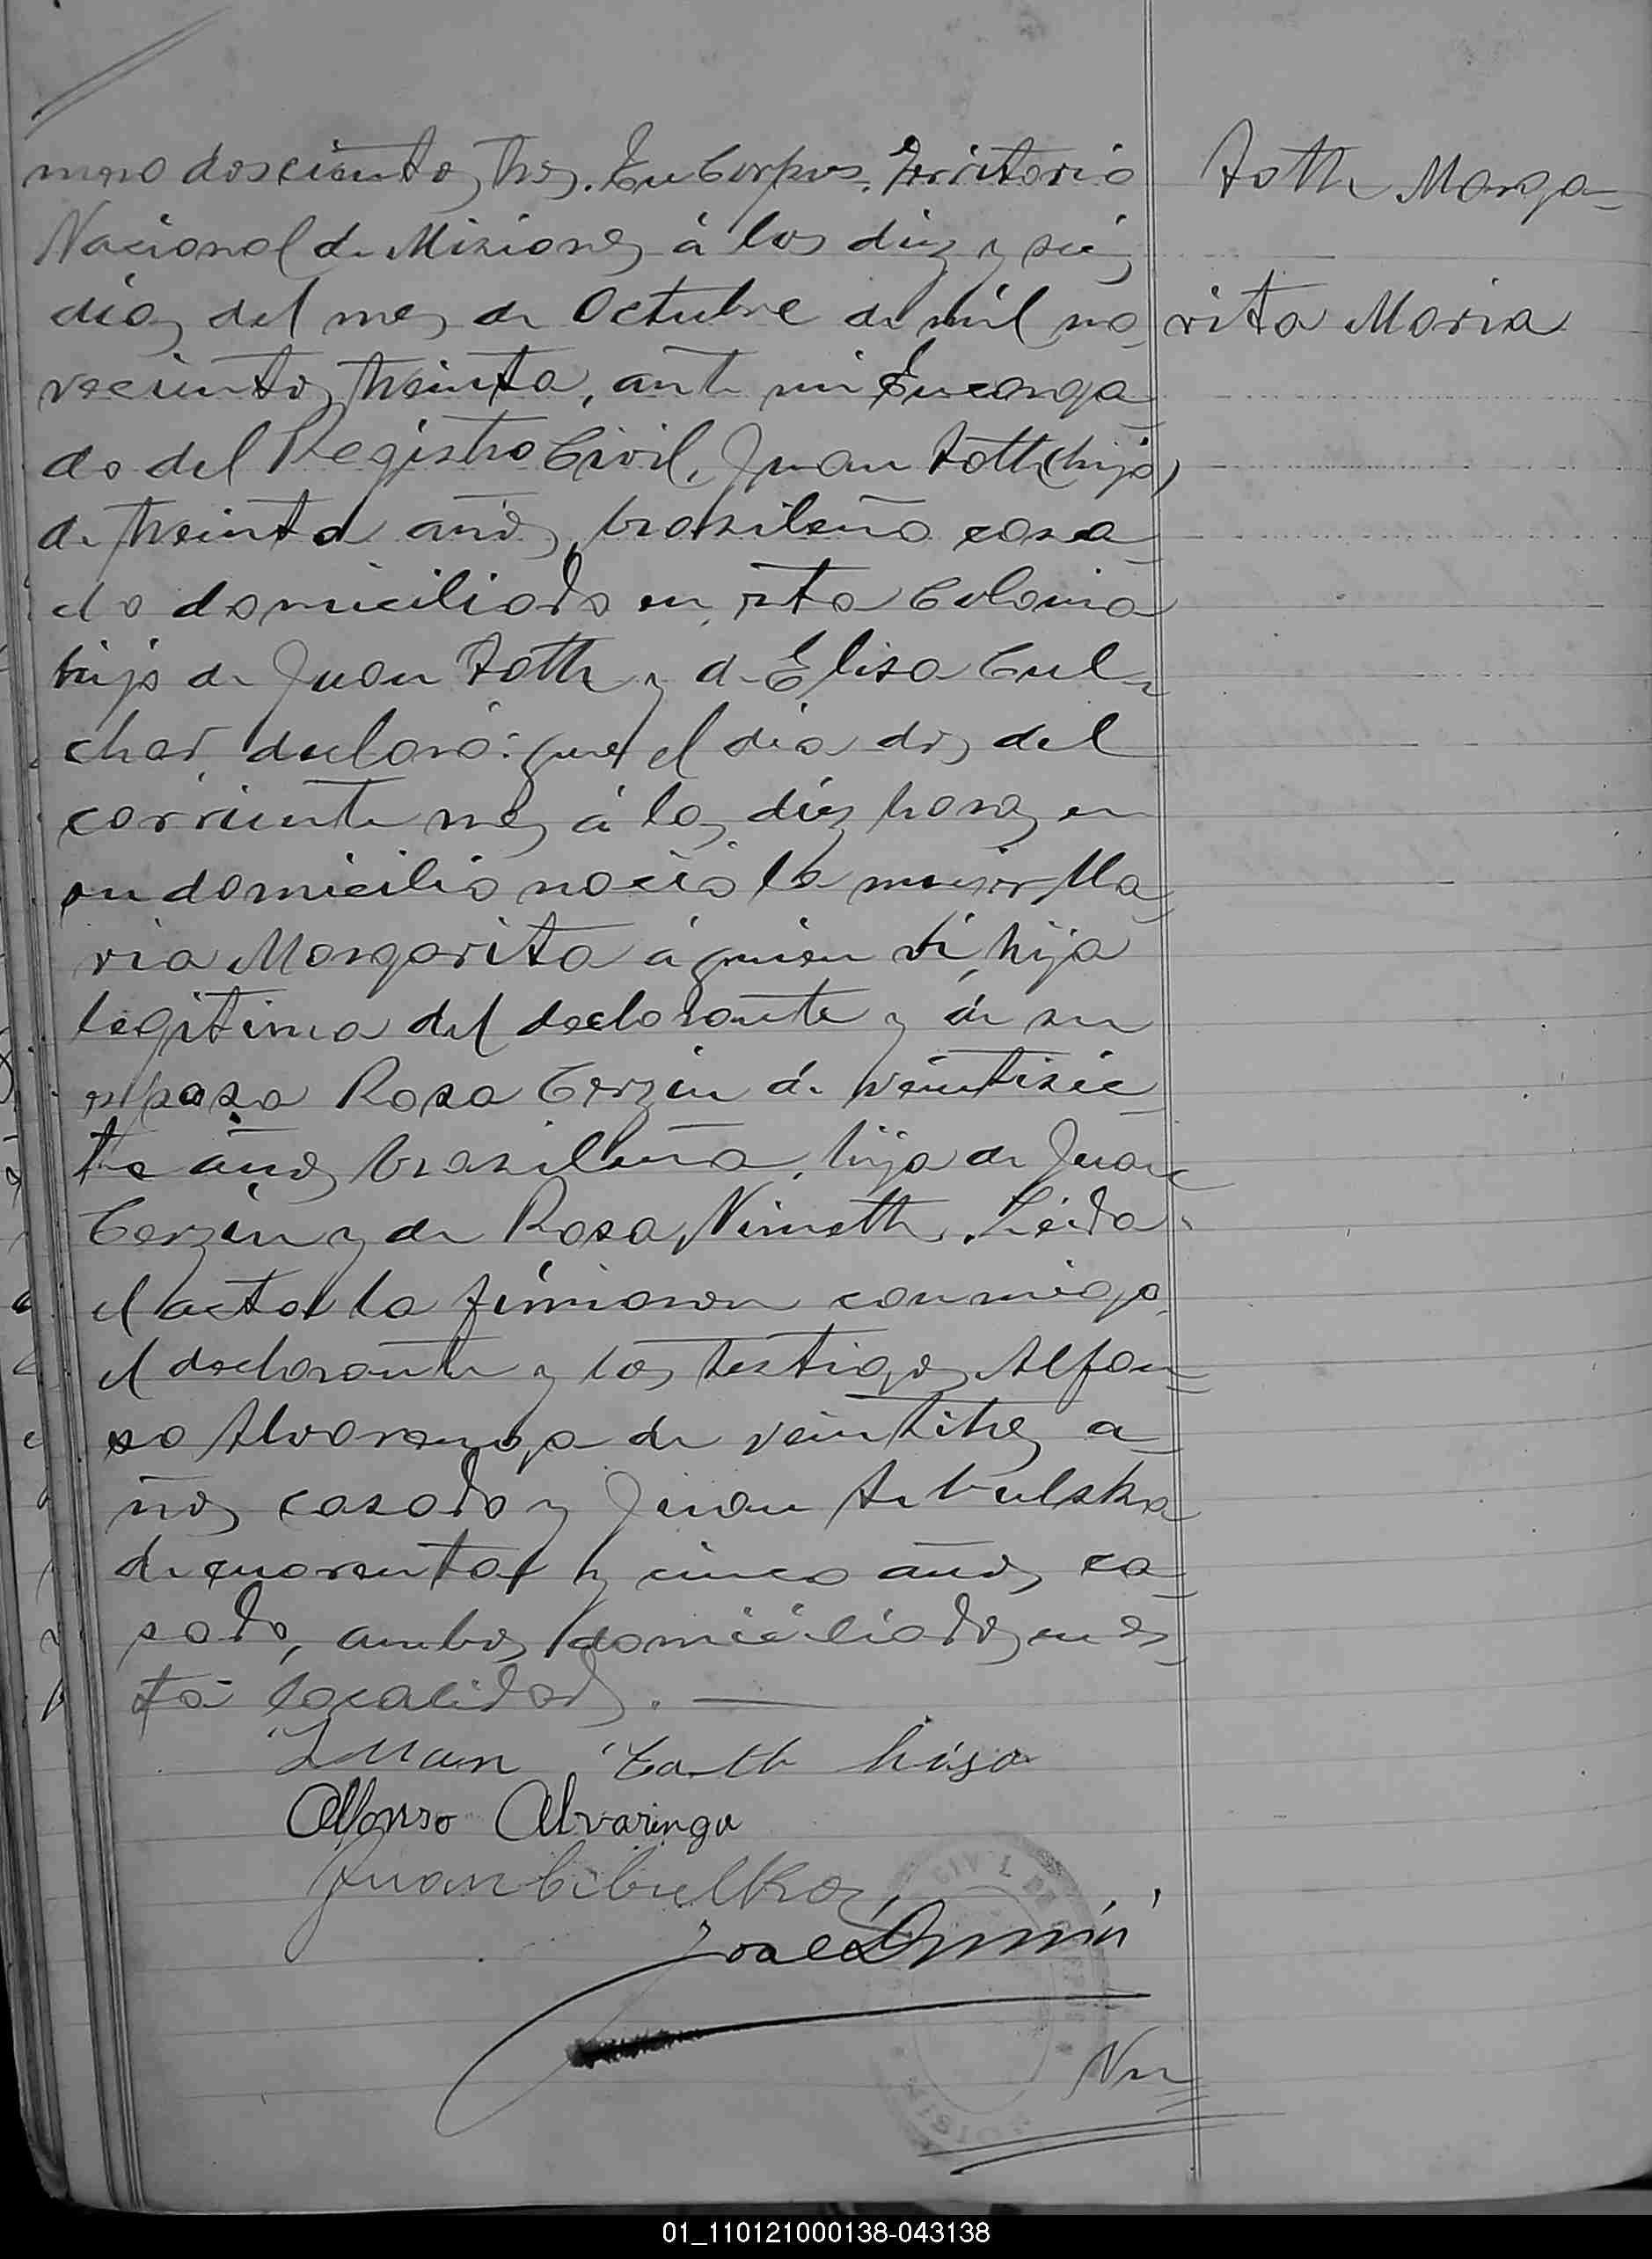 mero doscientos tres. En Corpus, Territorio
Nacional de Misiones á los diez y seis
dias del mes de Octubre de mil no
vecientos treinta, ante mi Encarga
do del Registro Civil, Juan Toth (hijo)
de treinta años, brasileño casa
do domiciliado en esta Colonia
hijo de Juan Toth y de Elisa Cul=
char, declaró: que el dia dos del
corriente mes á las diez horas en
su domicilio nació la mujer Ma
ria Margarita á quien ví, hija
legitima del declarante y de su
esposa Rosa Cerzin de veintisie
te años brasileña, hija de Juan
Cerzin y de Rosa Nimeth. Leida
el acta la firmaron conmigo
el declarante y los testigos Alfon=
so Alvarenga de veintitres a=
ños casado y Juan
de cuarenta y cinco años, ca=
sado, ambos domiciliados en es
ta localidad.
Juan Toth hijo
Alfonso Alvaringa
Juan Cibulka
José
Nu
Toth Marga=
rita Maria
CIVIL DE CORPUS
01_110121000138-043138